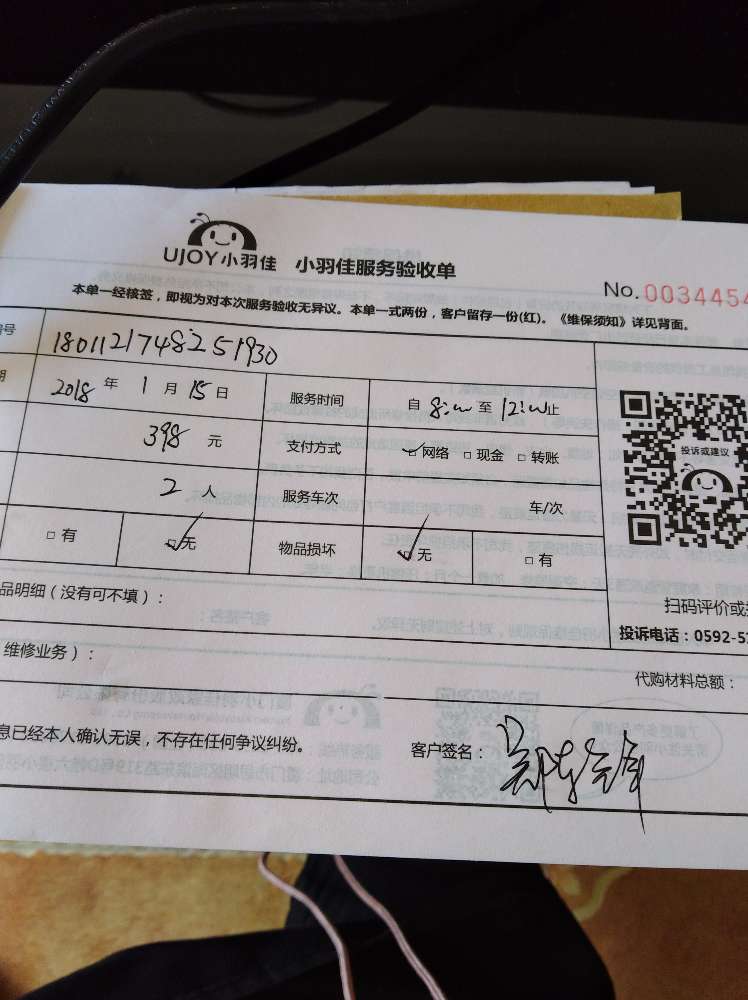 UJOY小羽佳 小羽佳服务验收单
No. 0034454
本单一经核签，即视为对本次服务验收无异议。本单一式两份，客户留存一份(红)。《维保须知》详见背面。
号 180112174825 1930
期 2018 年 1 月 15 日 服务时间 自 8:00 至 12:00止
398 元 支付方式 ☑网络 □现金 □转账
投诉或建议
2 人 服务车次 车/次
□有 ☑无 物品损坏 ☑无 □有
品明细（没有可不填）：
扫码评价或
投诉电话：0592-5
维修业务）：
代购材料总额：
息已经本人确认无误，不存在任何争议纠纷。 客户签名：